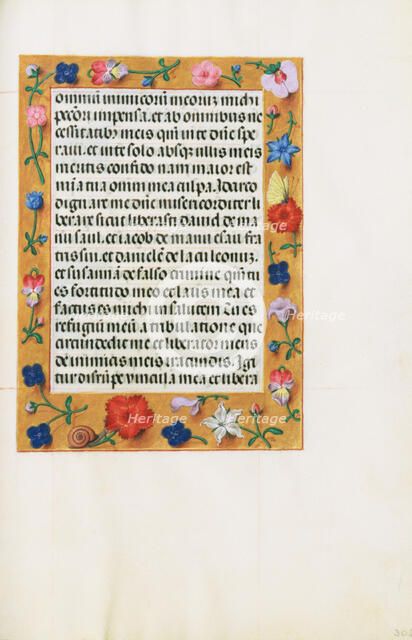 omniū inimicorū meorū michi
pecorū impensa. et ab omnibus ne
cessitatibꝫ meis qui in te duē spe
raui. et in te solo absqꝫ illis meis
meritis confido nam maior est
mea omni mea culpa. Idcirco
dignare me dñe misericorditer li
berare sicut liberasti dauid de ma
nu saul. et iacob de manu esau fra
tris sui. et danielē de lacu leonuꝫ.
et susannā de falso crimine qui tu
es fortitudo mea et laus mea et
factus es michi in salutem. Tu es
refugiū meū a tribulatione que
circūdedit me et liberator meus
de inimicis meis iracundis. Igi
tur disrūpe vincula mea et libera
Heritage
Heritage
Heritage
Heritage